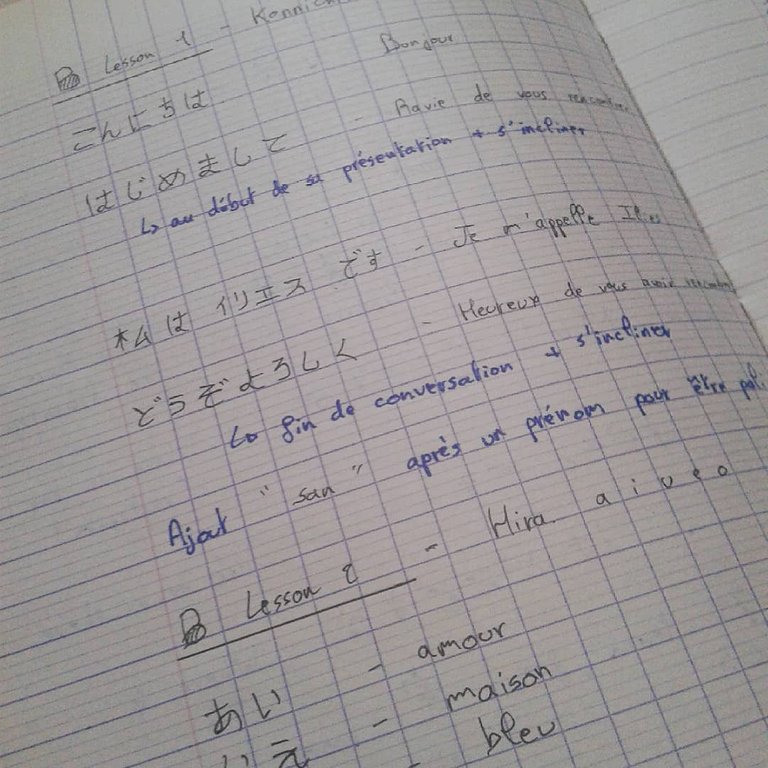 Lesson 1 - Konnich
こんにちは Bonjour
はじめまして - Ravie de vous rencontrer
↳ au début de sa présentation + s'incliner
私は イリエス です - Je m'appelle
どうぞよろしく - Heureux de vous avoir rencontré
↳ fin de conversation + s'incliner
Ajout "san" après un prénom pour être poli
Lesson 2 - Hira a i u e o
あい - amour
いえ - maison
- bleu